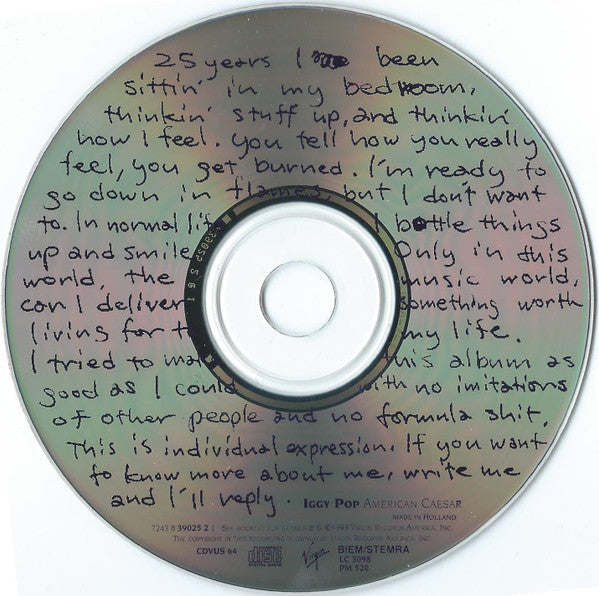 25 years I been
sittin' in my bedroom,
thinkin' stuff up, and thinkin'
how I feel. You tell how you really
feel, you get burned. I'm ready to
go down in flames, but I don't want
to. In normal lif I bottle things
up and smile Only in this
world, the music world,
can I deliver something worth
living for t my life.
I tried to ma this album as
good as I could with no imitations
of other people and no formula shit.
This is individual expression. If you want
to know more about me, write me
and I'll reply. IGGY POP AMERICAN CAESAR
MADE IN HOLLAND
7243 8 39025 2 1 ·SEE BOOKLET FOR DETAILS ℗ © 1993 VIRGIN RECORDS AMERICA, INC.
THE COPYRIGHT IN THIS RECORDING IS OWNED BY VIRGIN RECORDS AMERICA, INC.
CDVUS 64 COMPACT disc DIGITAL AUDIO Virgin BIEM/STEMRA
LC 3098
PM 520